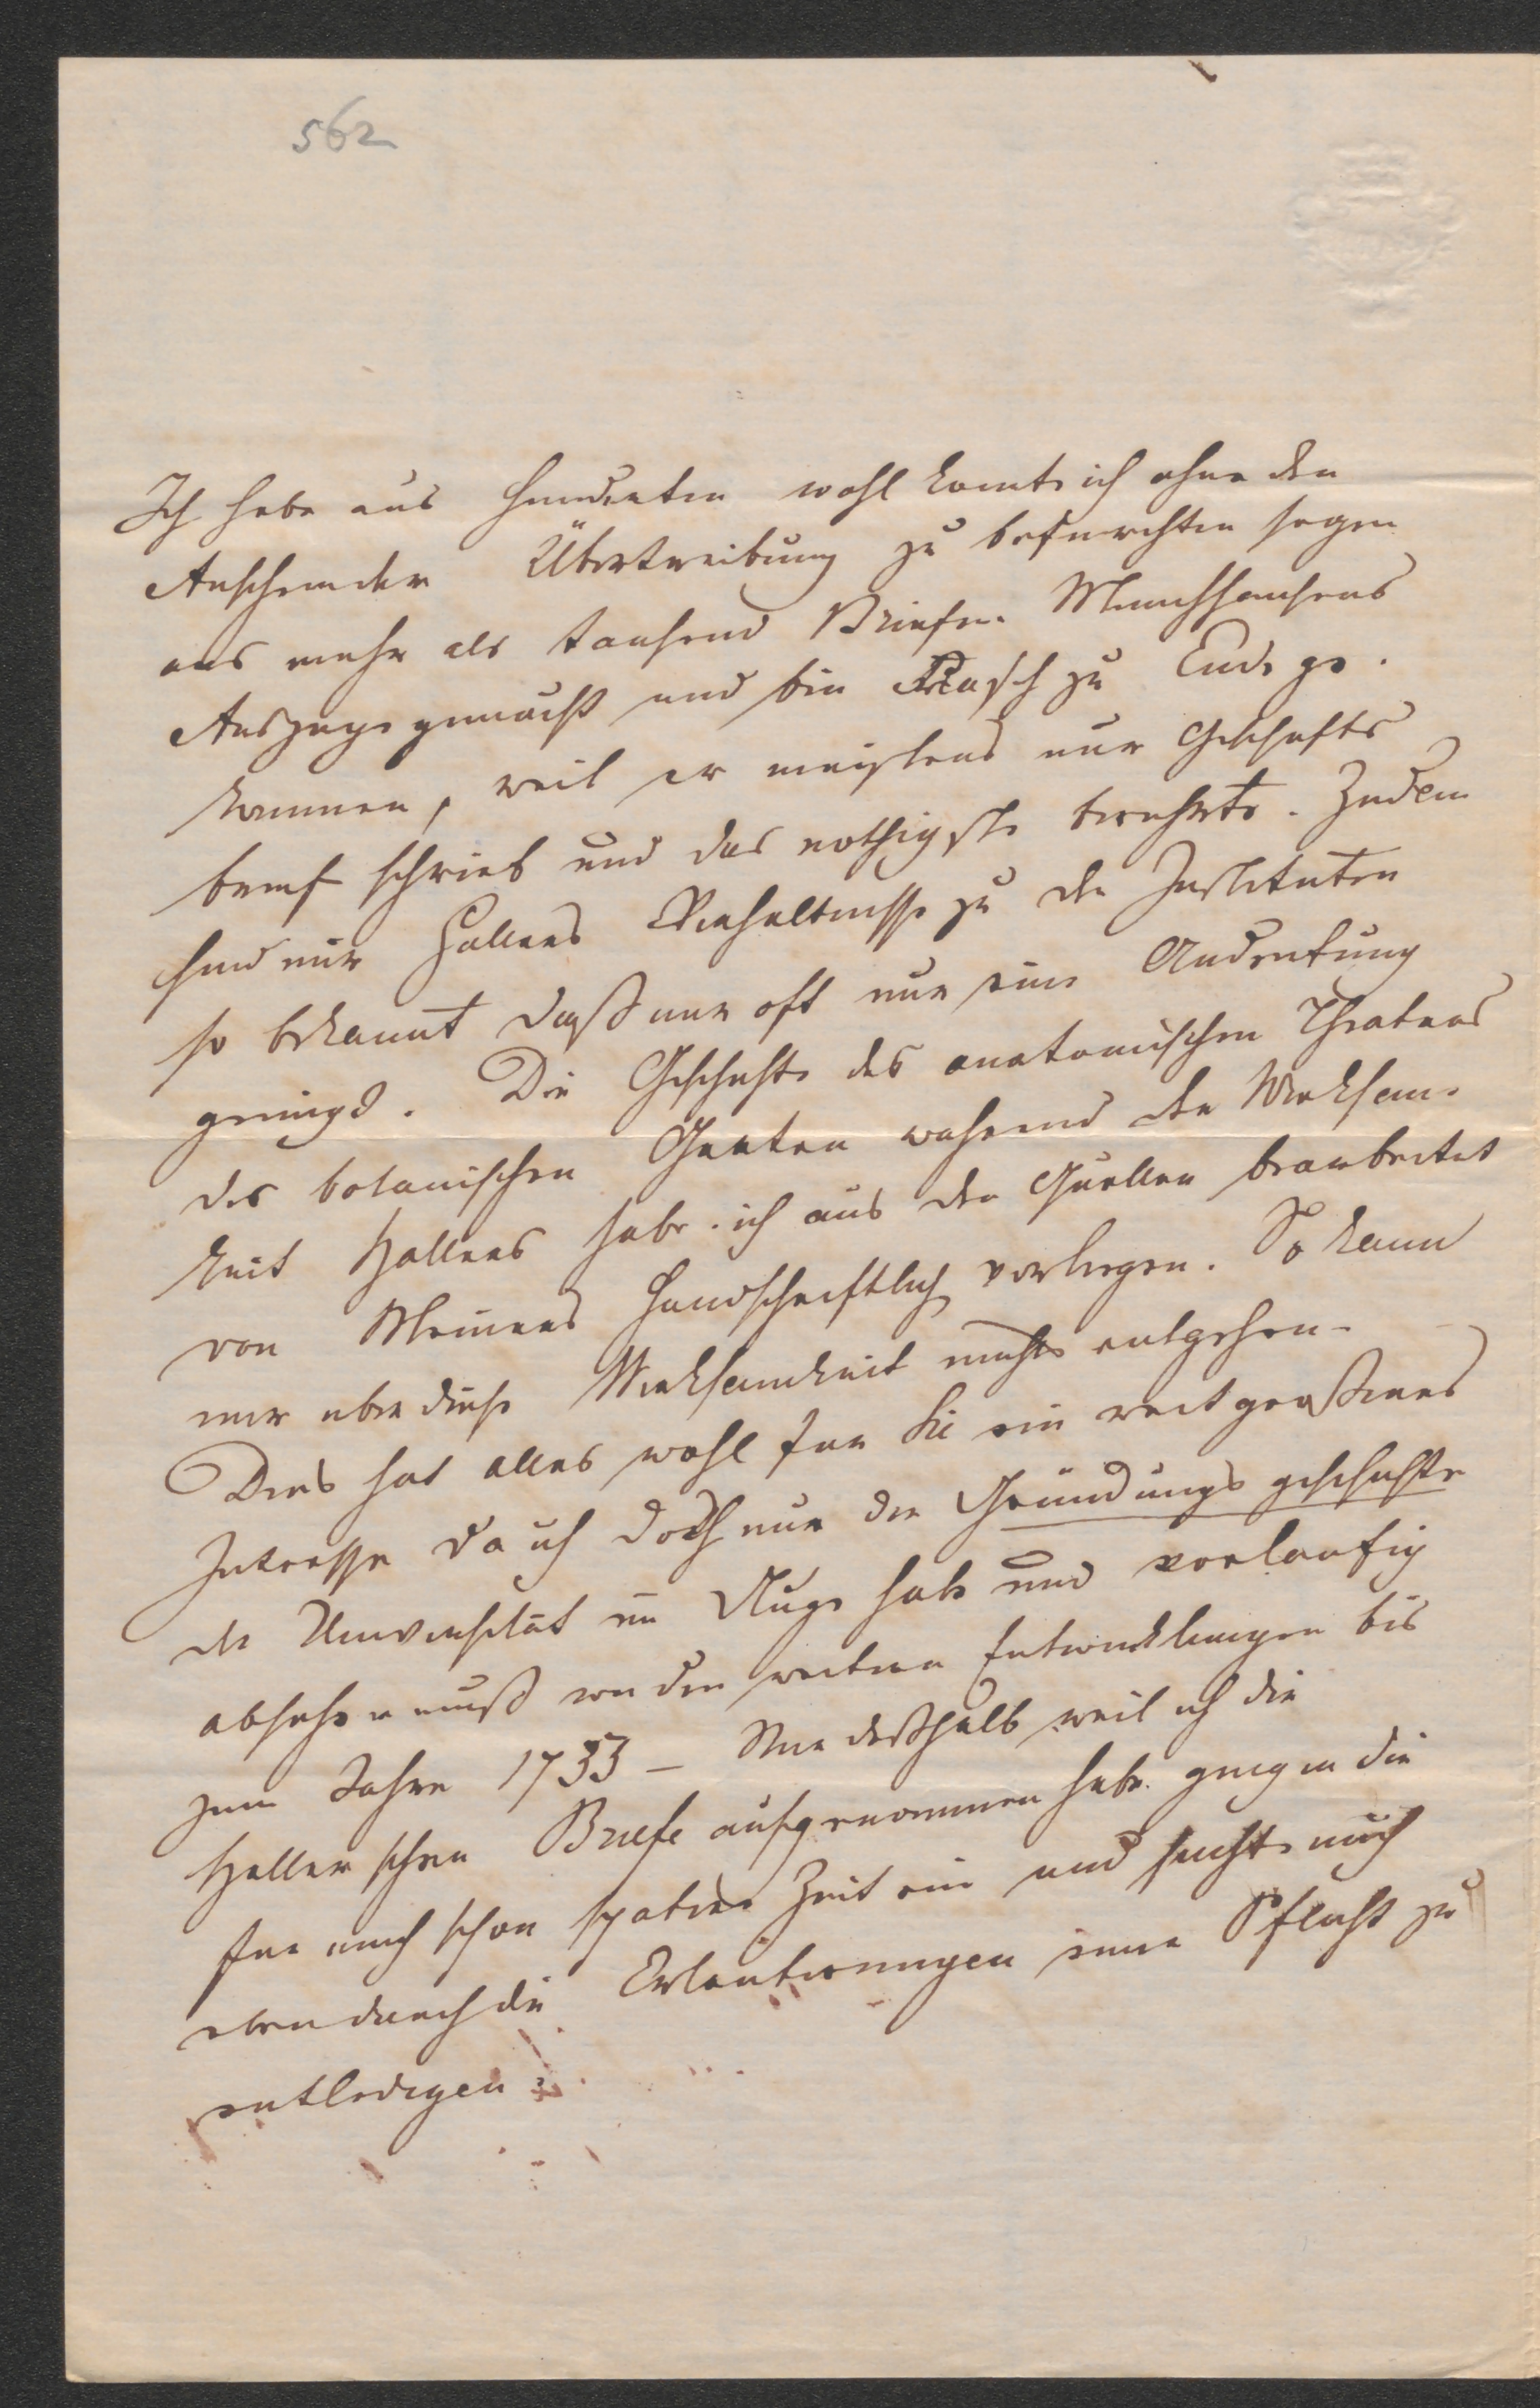 562
Ich habe aus Hunderten wohl konnte ich ohne den
Anschein der Übertreibung zu befurchten sagen
aus mehr als tausend Briefen Munchhausens
Auszuge gemacht und bin Rasch zu Ende ge-
kommen, weil er meistens nur Geschafts
breif schrieb und das nothigste beruhrte. Zudem
sind mir Hallers Verhaltnisse zu den Instituten
so bekannt daß mir oft nur eine Andeutung
genugd. Die Geschichte des anatomischen Theaters
des botanischen Garten wahrend der Wirksam-
keit Hallers habe ich aus den Quellen bearbeitet
von Meiners Handschriftlich vorliegen. So kann
mir uber diese Wirksamkeit nichts entgehen-
Dies hat alles wohl fur Sie ein weit großeres
Interesse da ich doch nur die Gründungs geschichte
der Universität im Auge habe und vorlaufig
absehen muß von den weitern Entwicklungen bis
zum Jahre 1733 - Nur deßhalb weil ich die
Haller schen Briefe aufgenommen habe gieng in die
fur mich schon spatere Zeit ein und suchte mich
eben durch die Erlauterungen einer Pflicht zu
entledigen.